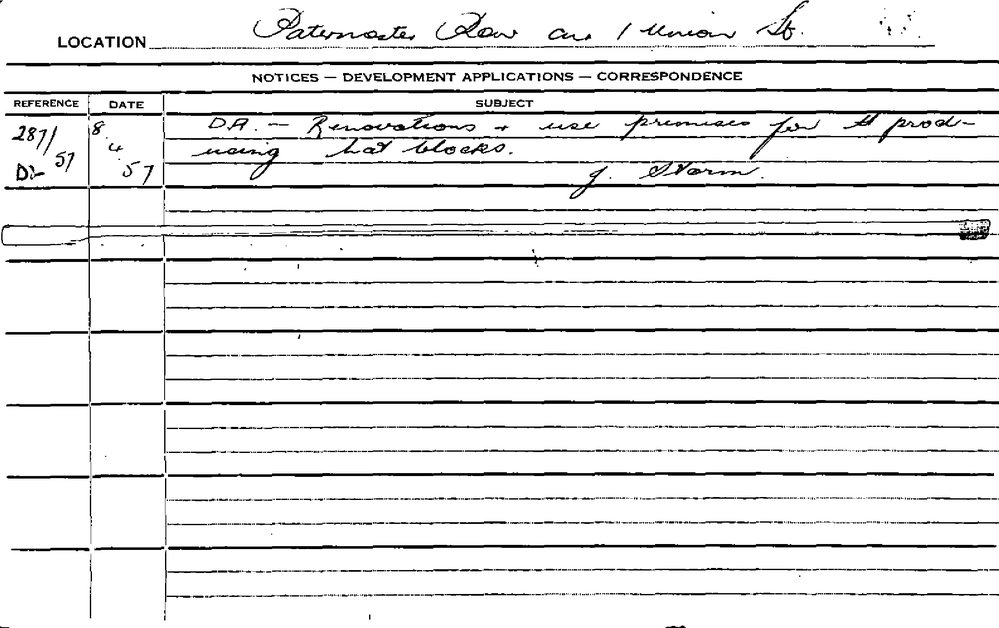 LOCATION Paternoster Row 1 Union St.
NOTICES — DEVELOPMENT APPLICATIONS — CORRESPONDENCE
REFERENCE DATE SUBJECT
287/57 8 4 57 D.A. — Renovations + use premises for prod-
ucing hat blocks.
J. Storm.